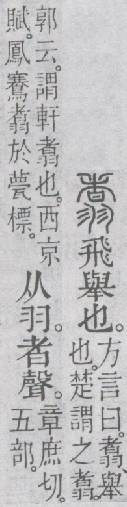 翥飛舉也。方言曰。翥、舉
也。楚謂之翥。
郭云。謂軒翥也。西京
賦。鳳鶱翥於甍標。
从羽。者聲。章庶切。
五部。